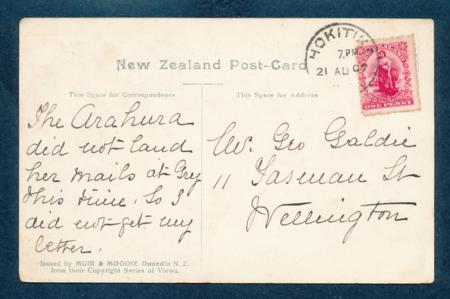 HOKITIKA
7.PM
21 AU 07
ONE PENNY
New Zealand Post-Card
This Space for Correspondence
This Space for Address
The Arahura
did not land
her mails at Grey
this time. So I
did not get my
letter.
Geo Galdie
11 Tasman St
Wellington
Issued by MUIR & MOODIE Dunedin N.Z.
from their Copyright Series of Views.